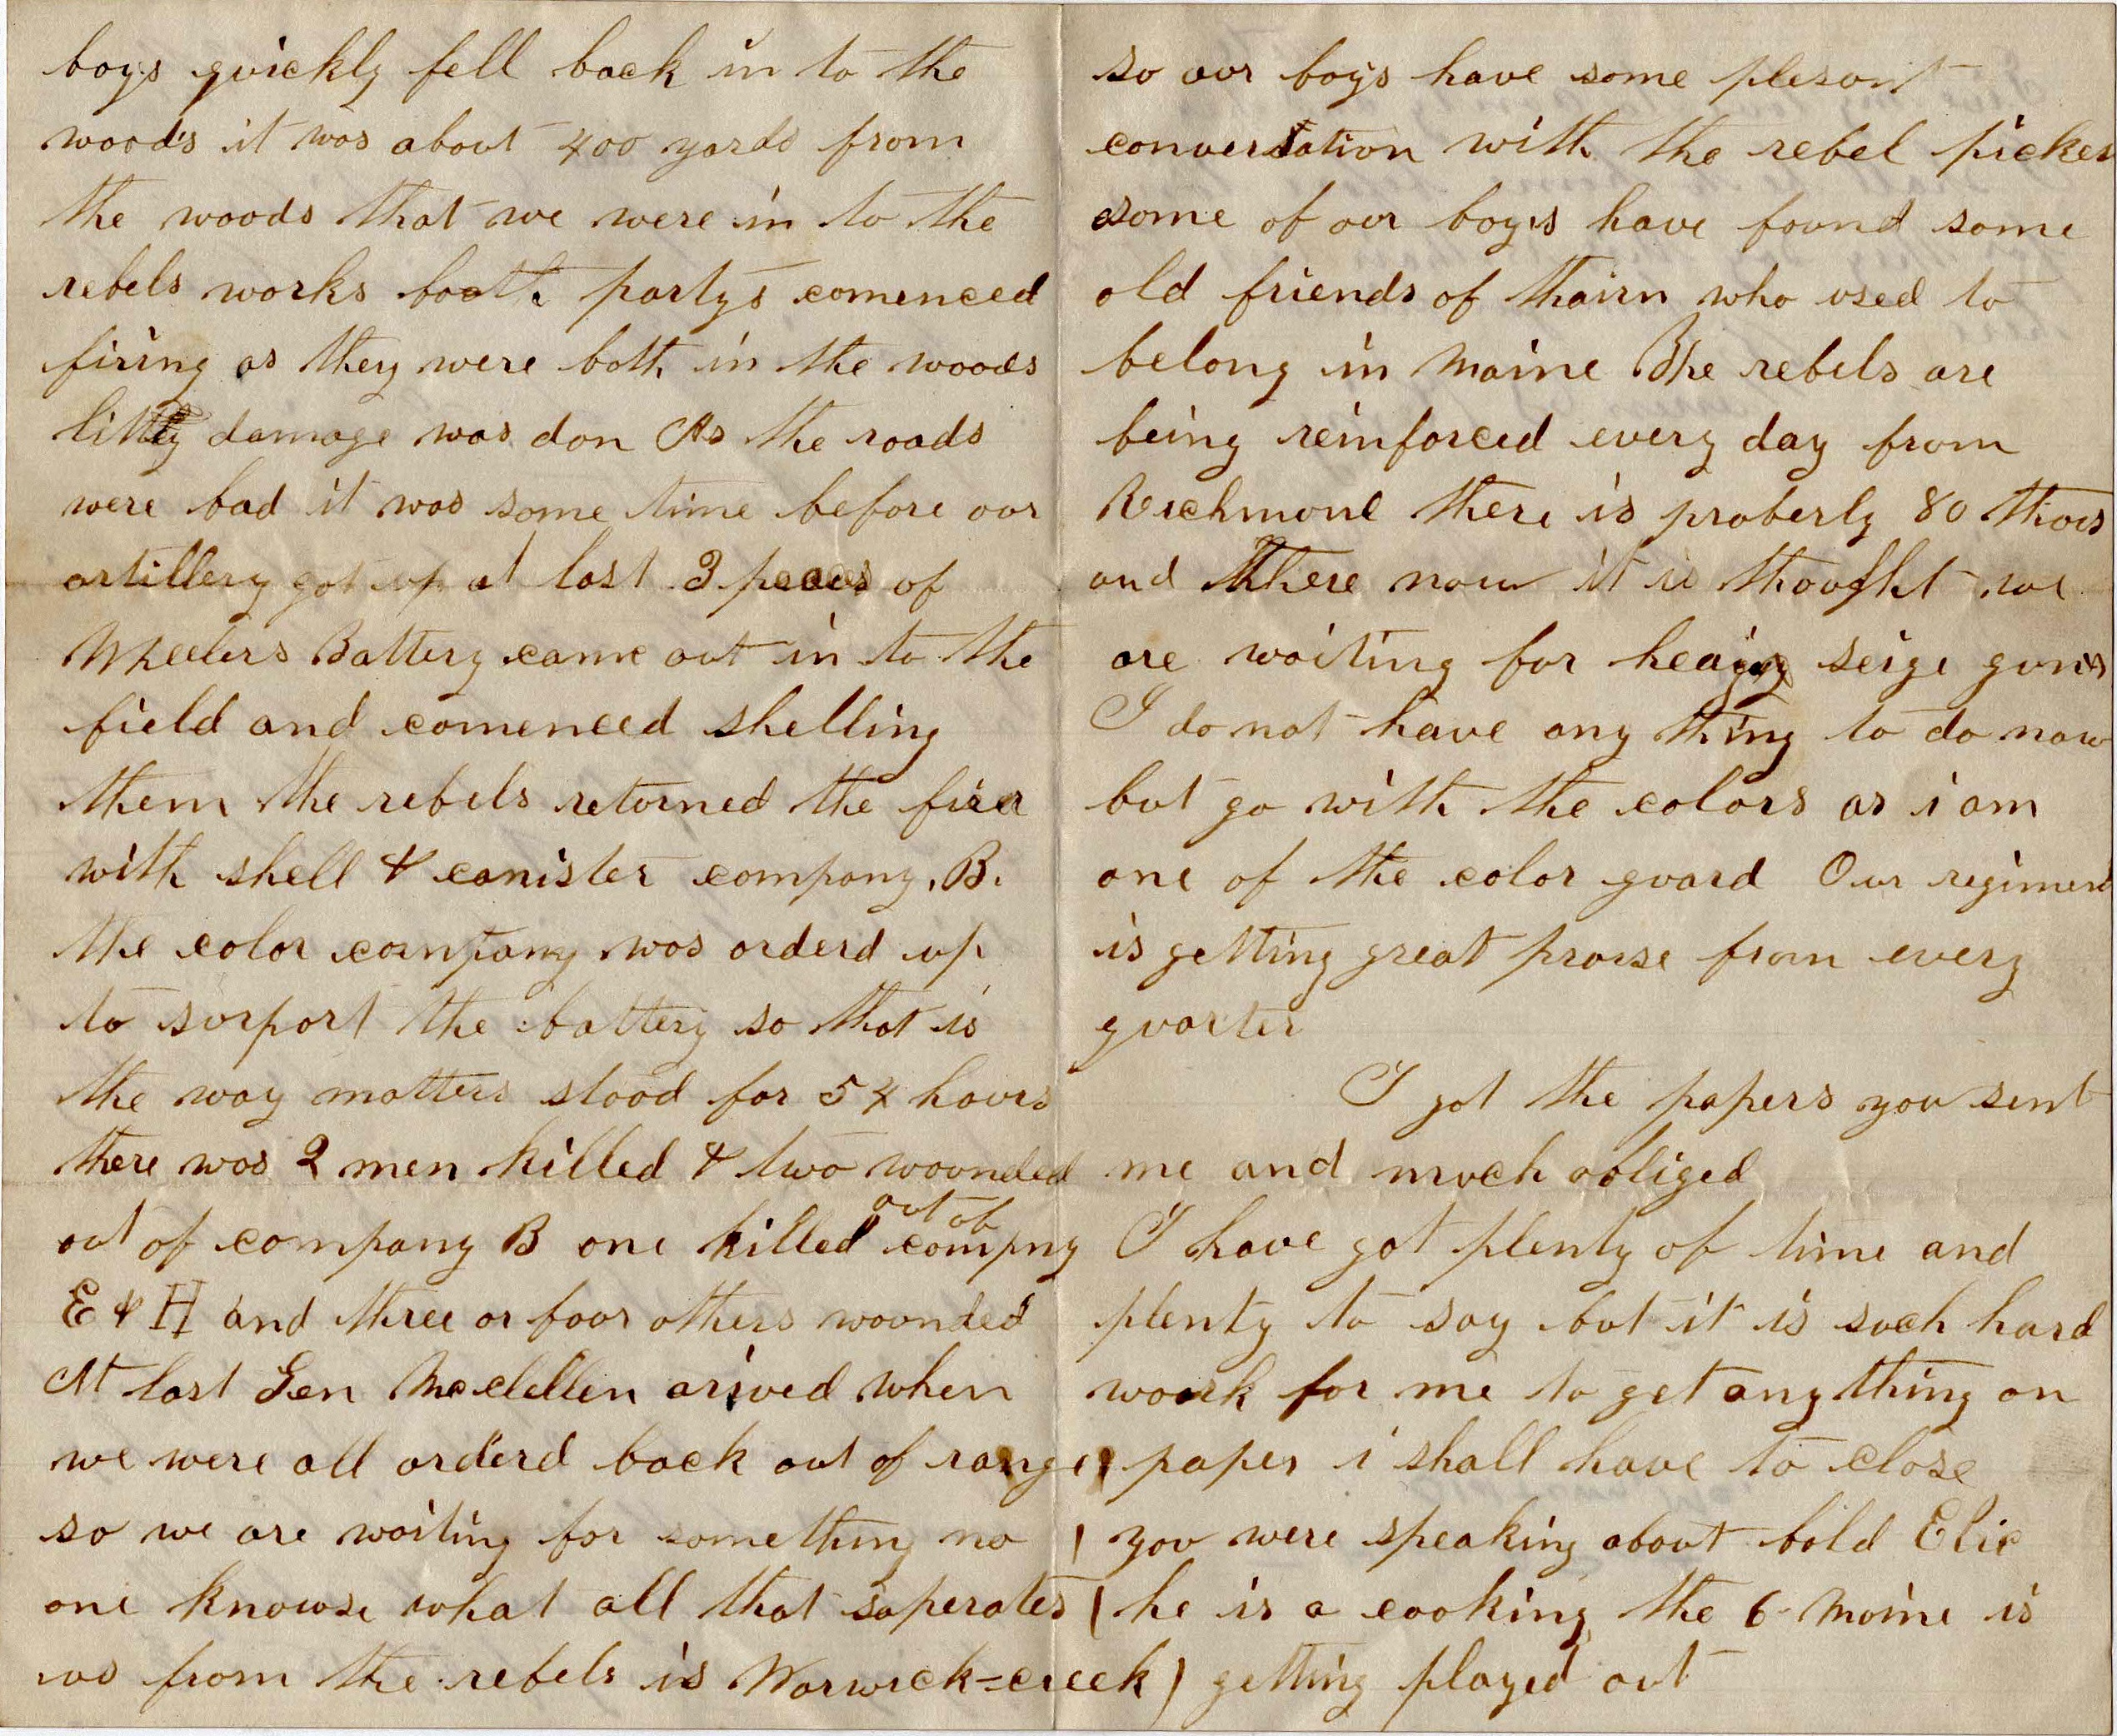 boys quickly fell back in to the
woods it was about 400 yards from
the woods that we were in to the
rebels works booth partys comenced
firing as they were both in the woods
little damage was don As the roads
were bad it was some time before our
artillery got up at last 3 peaces of
Wheelers Battery came out in to the
field and comenced shelling
them the rebels returned the fier
with shell & canister company. B.
the color company was orderd up
to surport the battery so that is
the way matters stood for 54 hours
there was 2 men killed & two wounded
out of company B one killed out of compny
E & H and three or four others wounded
At last Gen Mcclellen arived when
we were all orderd back out of range
so we are waiting for something no
one knowse what all that saperates
us from the rebels is Warwick=creek
so our boys have some plesant
conversation with the rebel picket
some of our boys have found some
old friends of thairn who used to
belong in Maine The rebels are
being reinforced every day from
Richmond there is proberly 80 thous
and there now it is thought we
are waiting for heavy seige guns
I do not have any thing to do now
but go with the colors as i am
one of the color guard Our regiment
is getting great prarse from every
quarter
I got the papers you sent
me and much obliged
I have got plenty of time and
plenty to say but it is such hard
woork for me to get anything on
paper i shall have to close
you were speaking about bold Elic
he is a cooking the 6 Maine is
getting played out